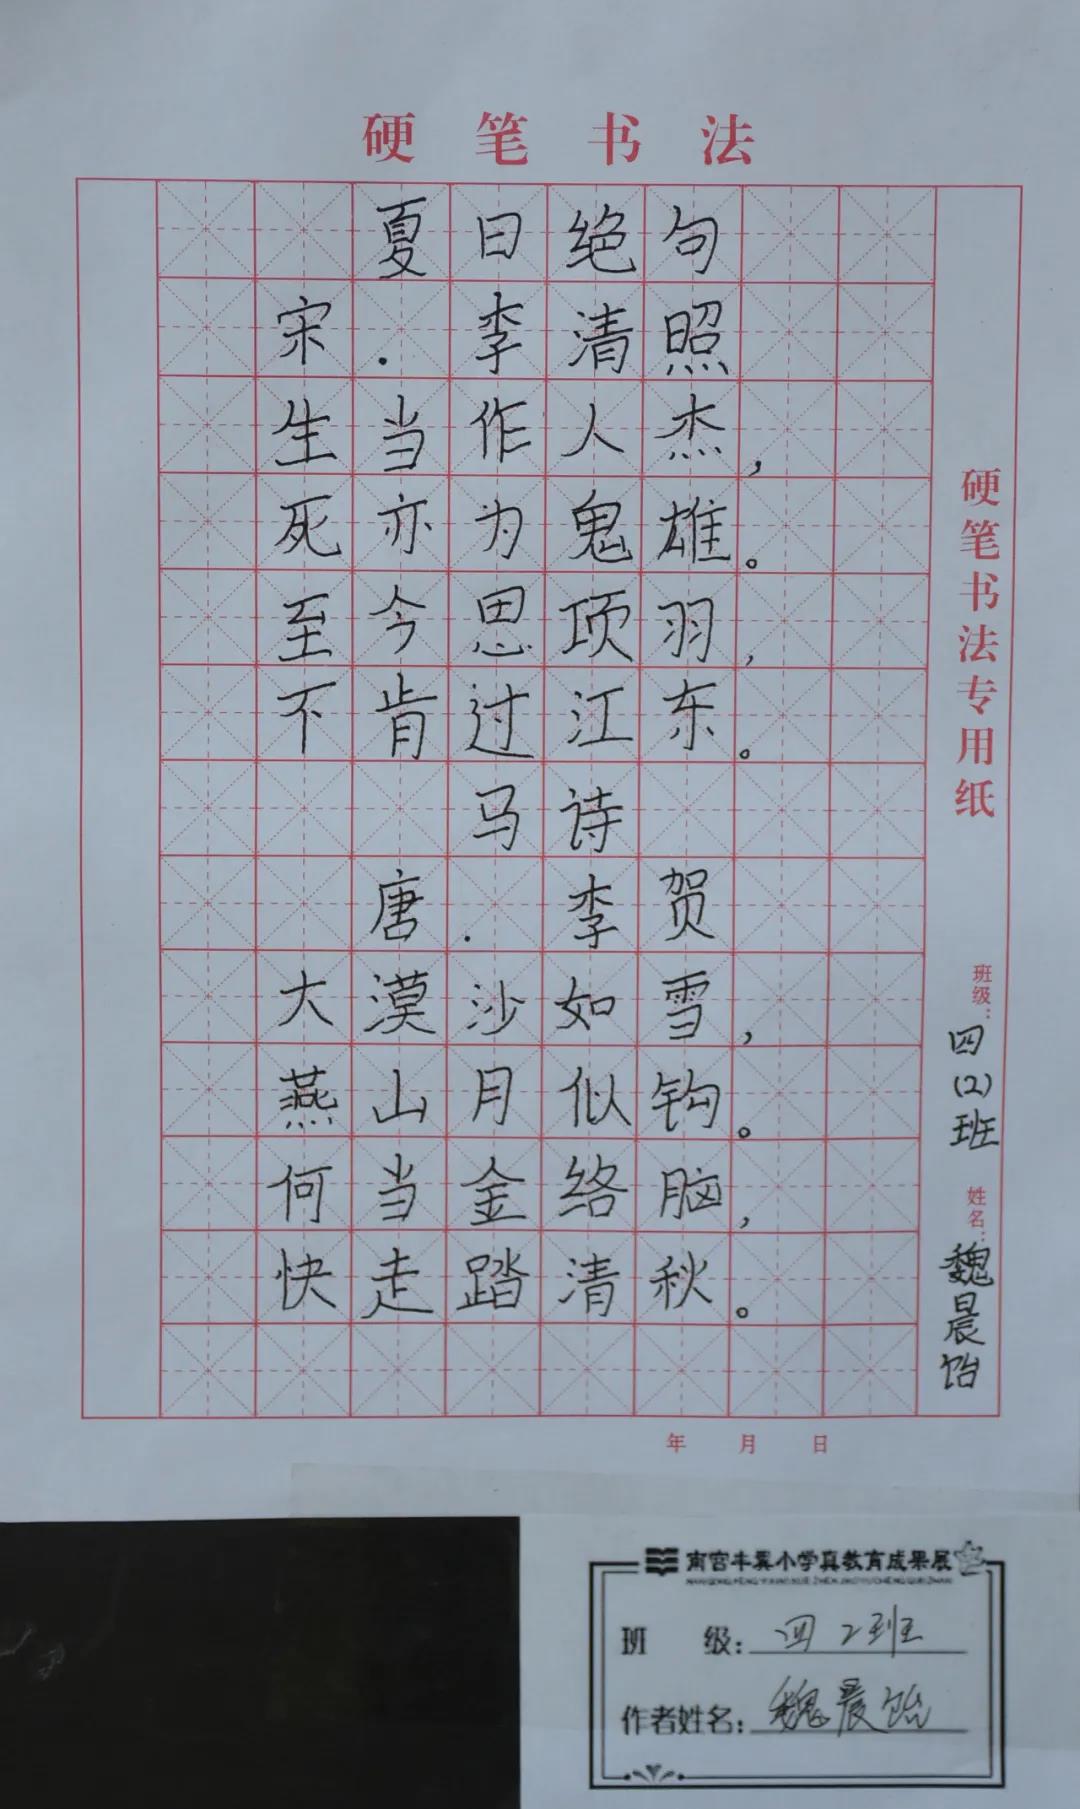 硬笔书法
夏日绝句
宋.李清照
生当作人杰，
死亦为鬼雄。
至今思项羽，
不肯过江东。
马诗
唐.李贺
大漠沙如雪，
燕山月似钩。
何当金络脑，
快走踏清秋。
硬笔书法专用纸
班级：四(2)班
姓名：魏晨饴
年 月 日
南宫丰翼小学真教育成果展
班 级：四2班
作者姓名：魏晨饴